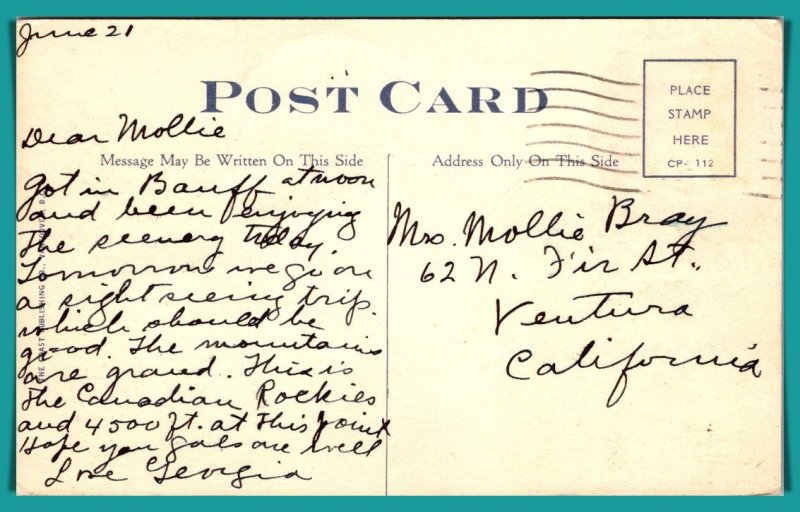 June 21
POST CARD
PLACE
STAMP
HERE
CP- 112
Dear Mollie
Message May Be Written On This Side
Address Only On This Side
Got in Banff at noon
and been enjoying
the scenery today.
Tomorrow we go on
a sight seeing trip.
which should be
good. The mountains
are grand. This is
the Canadian Rockies
and 4500 ft. at this point
Hope you gals are well
Love Georgia
Mrs. Mollie Bray
62 N. Fir St.,
Ventura
California
THE COAST PUBLISHING CO.,